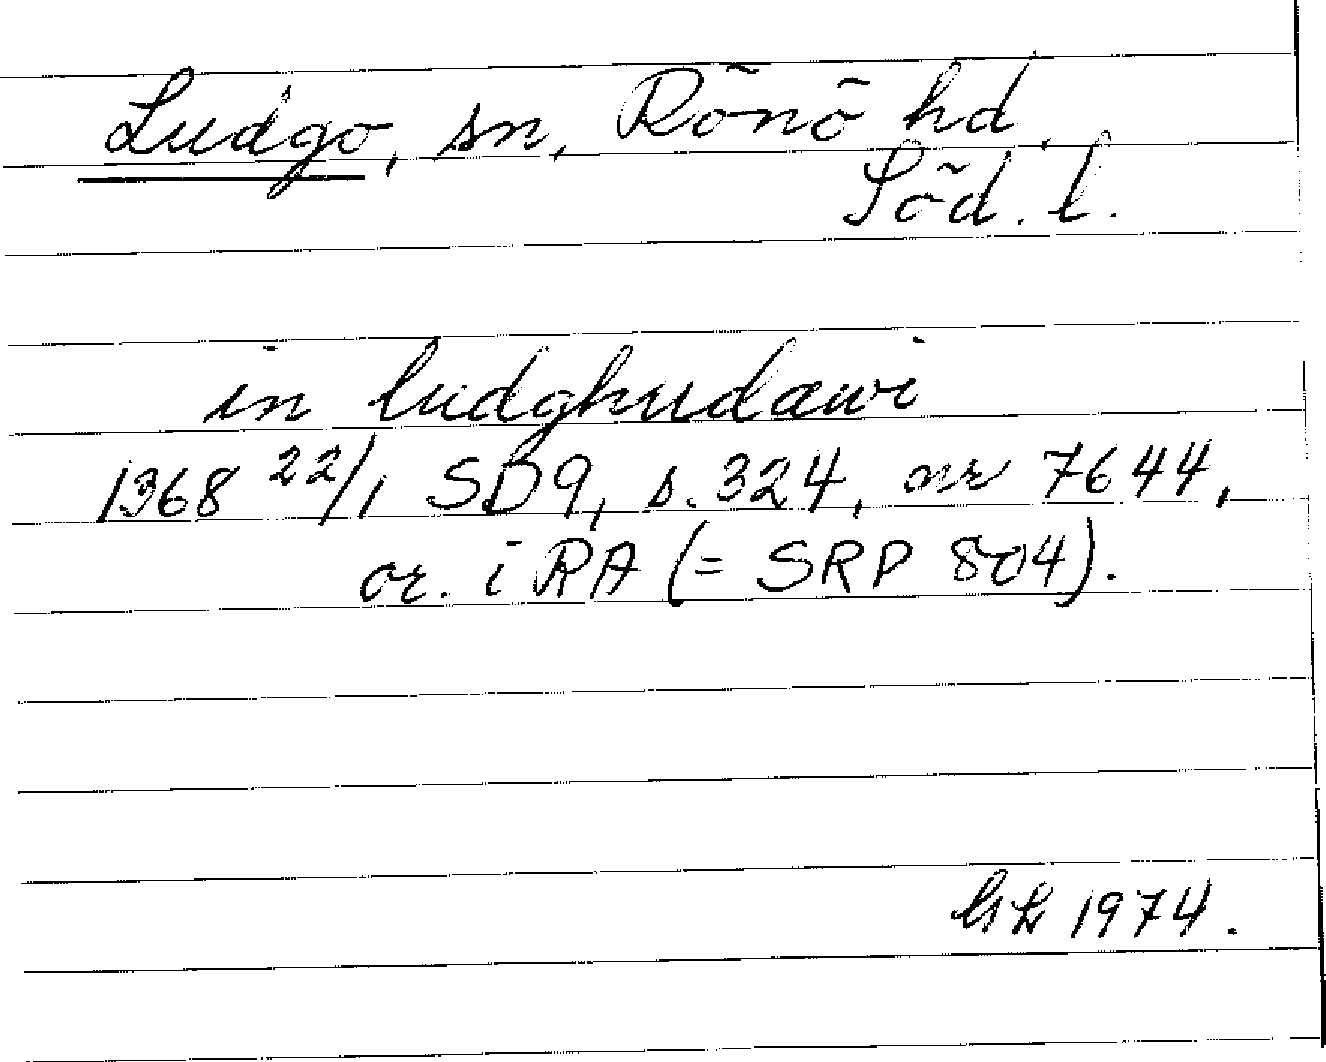 Ludgo, sn, Rönö hd,
Söd. l.
in ludghudæwi
1368 22/1 SD9, s. 324, nr 7644,
or. i RA (= SRP 804).
1974.